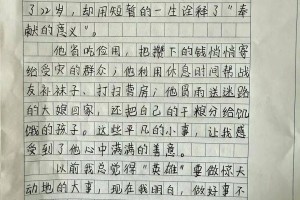 了22岁，却用短暂的一生诠释了“奉
献的意义”。
他省吃俭用，把攒下的钱悄悄寄
给受灾的群众；他利用休息时间帮战
友补袜子、打扫营房；他冒雨送迷路
的大娘回家，还把自己的干粮分给饥
饿的孩子。这些平凡的小事，让我感
受到了他心中满满的善意。
以前我总觉得“英雄”要做惊天
动地的大事，现在我明白，做好事不